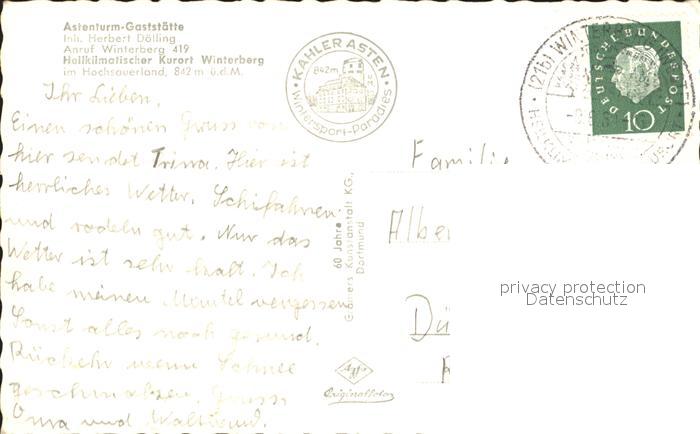 Astenturm-Gaststätte
Inh. Herbert Dölling
Anruf Winterberg 419
Heilklimatischer Kurort Winterberg
im Hochsauerland, 842 m ü.d.M.
· KAHLER ASTEN ·
842m
Wintersport-Paradies
(21b) WINTER
DEUTSCHE BUNDESPOST
10
Ihr Lieben,
Einen schönen Gruss von
hier sendet Trina. Hier ist
herrliches Wetter. Schifahren
und rodeln gut. Nur das
Wetter ist sehr kalt. Ich
habe meinen Mantel vergessen
Sonst alles noch gesund.
Rückehr wenn Schnee
geschmolzen. Gruss
Oma und
Famili
Albe
Dü
60 Jahre
Graphische Kunstanstalt KG,
Dortmund
Agfa
Originalfoto
privacy protection
Datenschutz